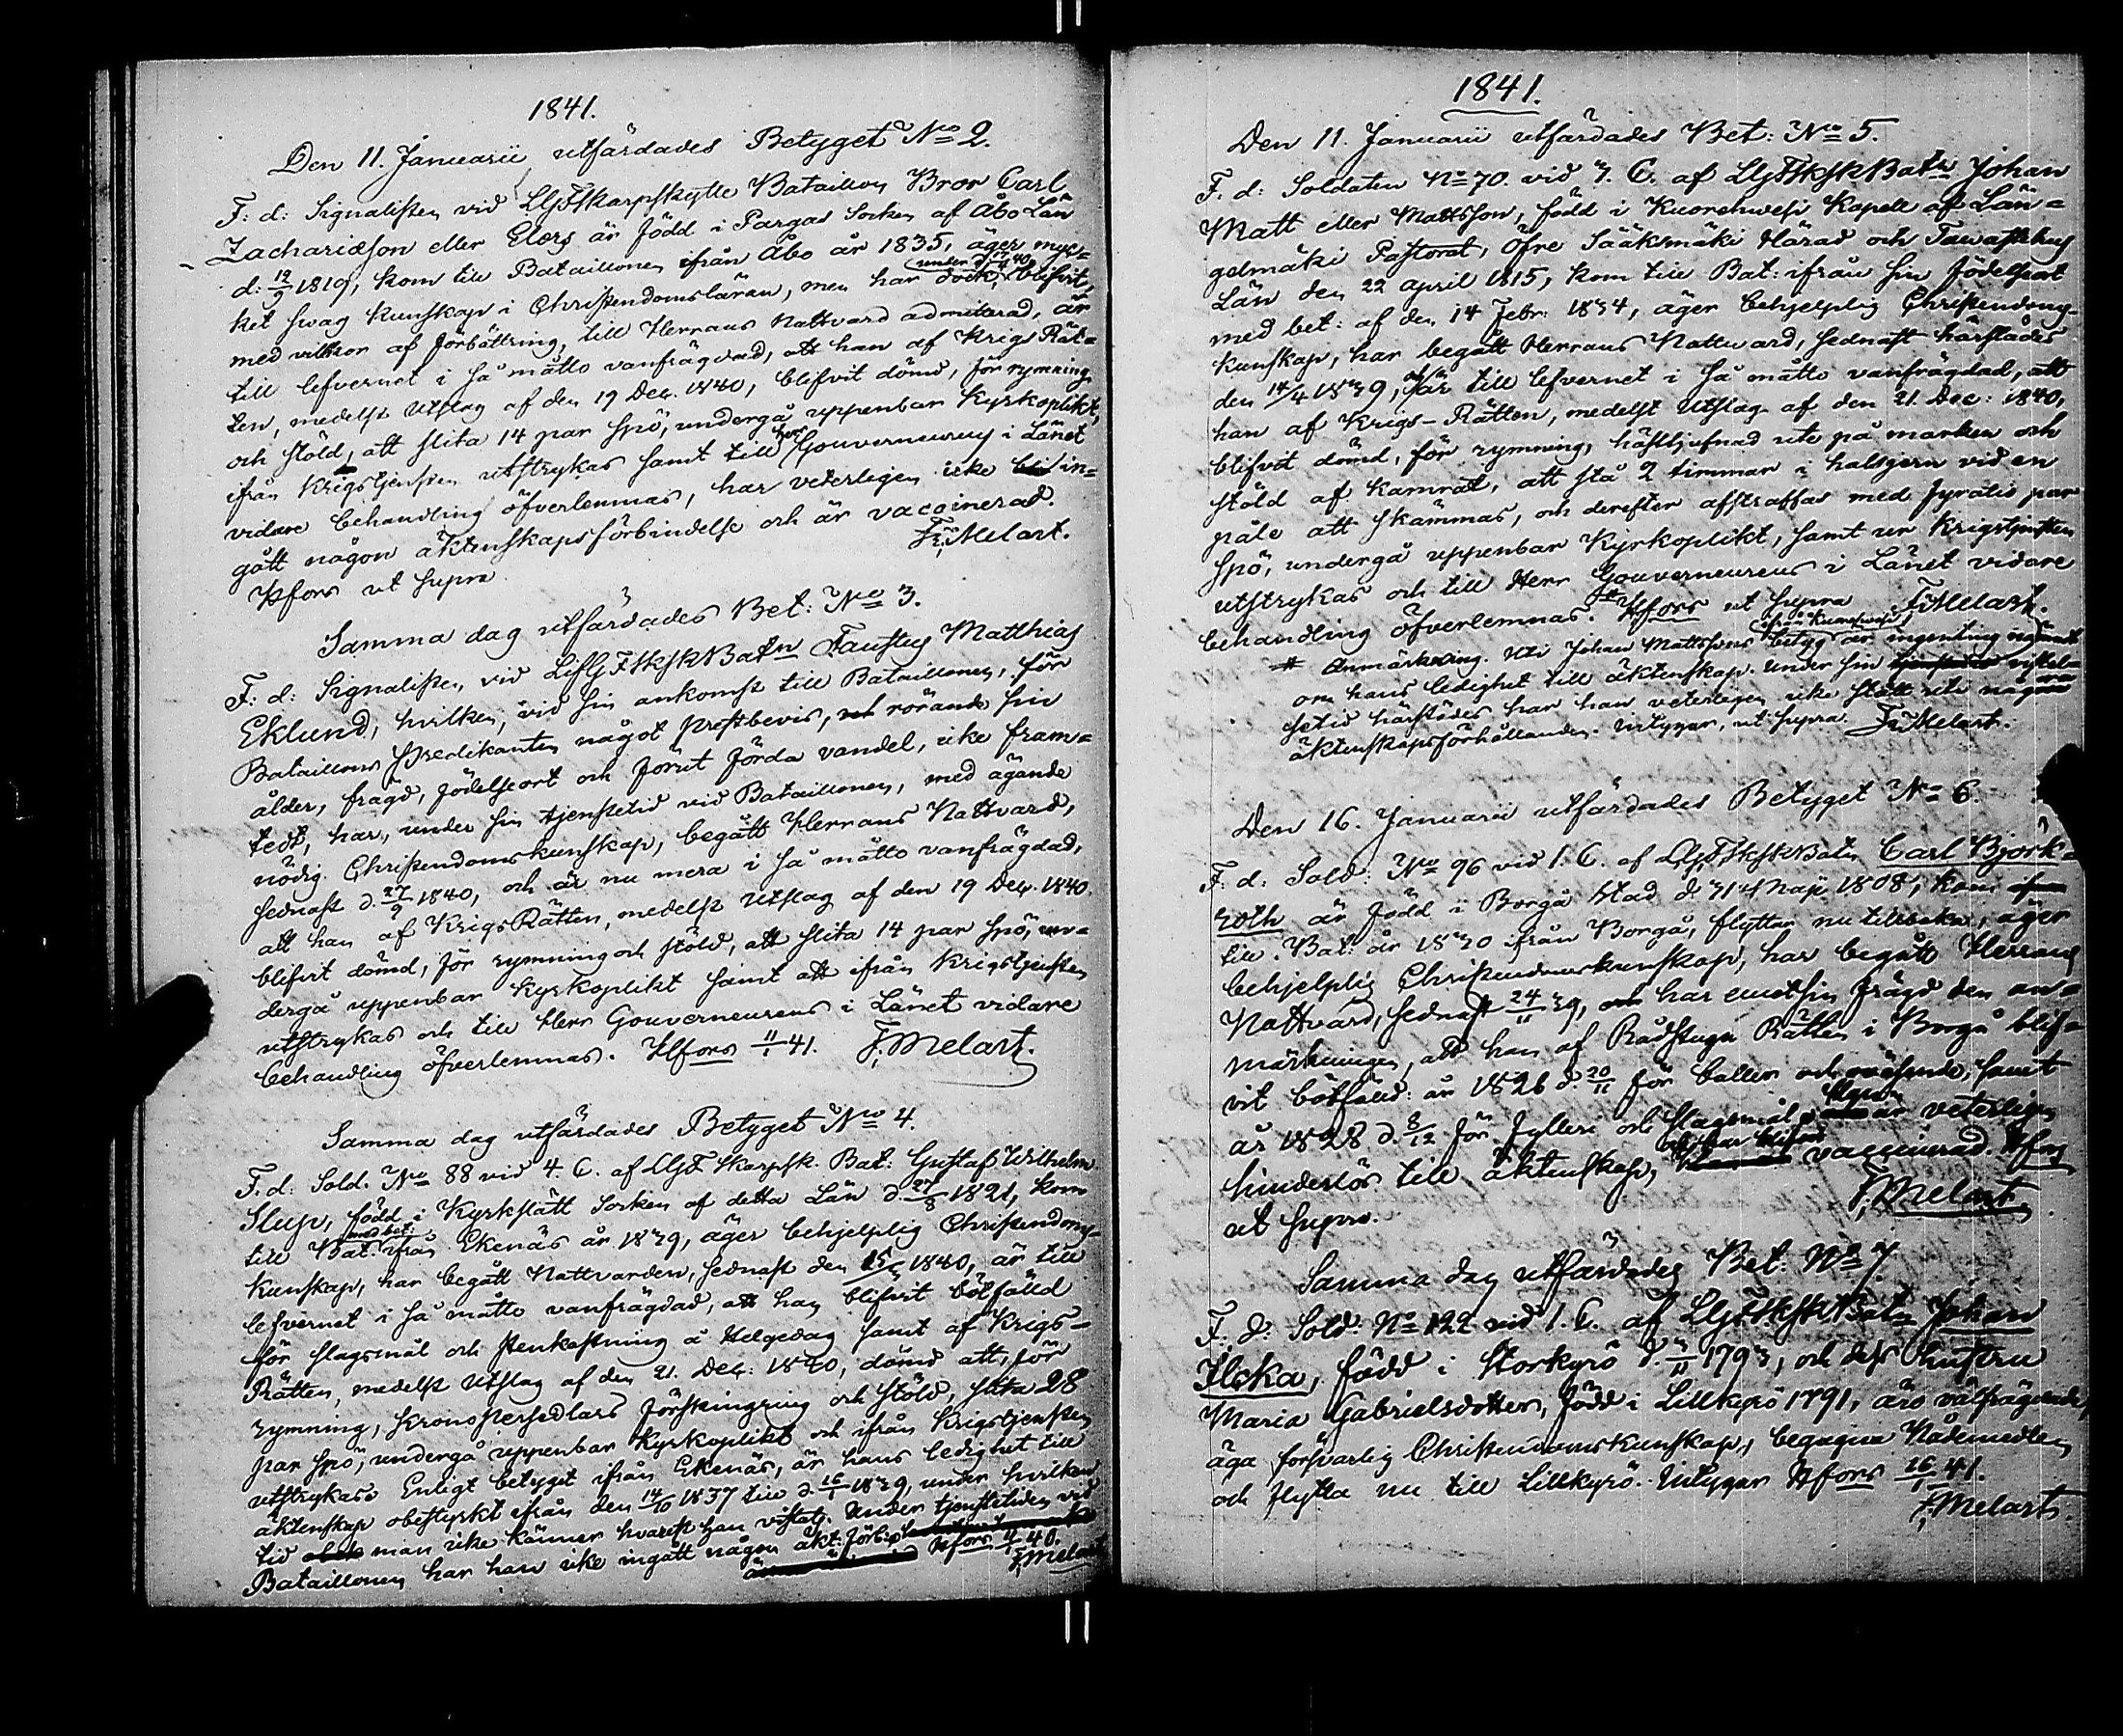 1841.
Den 11. Januarii utfärdades Betyget No 2.
F: d: Signalisten vid LGFSkarpskytte Bataillon Bror Carl
Zachariæson eller Elers är född i Pargas Socken af Åbo Län
d: 12/9 1819, kom till Bataillonen ifrån Åbo år 1835, äger myc-
ket swag kunskap i Christendomsläran, men har dock, blifvit,
med vilkor af förbättring, till Herrans Nattvard admitterad, är
till lefvernet i så måtto vanfrägdad, att han af Krigs Rät-
ten, medelst Utslag af den 19 Dec. 1840, blifvit dömd, för rymning
och stöld, att slita 14 par spö, undergå uppenbar Kyrkoplikt,
ifrån Krigstjensten utstrykas samt till Herr Gouverneurens i Länet
vidare behandling öfverlemnas, har veterligen icke in-
gått någon äktenskapsförbindelse och är vaccinerad.
Hfors ut supra Fr. Melart.
Samma dag utfärdades Bet: No 3.
F: d: Signalisten, vid LGFSkSkBatn Faustus Matthias
Eklund, hvilken, vid sin ankomst till Bataillonen, för
Bataillons Predikanten något prestbevis, rörande sin
ålder, frägd, födelseort och förut förda vandel, icke fram-
tedt, har, under sin tjenstetid vid Bataillonen, med ägande
nödig Christendomskunskap, begått Herrans Nattvard,
sednast d. 27/9 1840, och är nu mera i så måtto vanfrägdad,
att han af KrigsRätten, medelst Utslag af den 19 Dec. 1840.
blifvit dömd, för rymning och stöld, att slita 14 par spö, un-
dergå uppenbar Kyrkoplikt samt att ifrån Krigstjensten
utstrykas och till Herr Gouverneurens i Länet vidare
behandling öfverlemnas. Hfors 11/1 41. F. Melart.
Samma dag utfärdades Betyget No 4.
F. d: Sold. No 88 vid 4. C. af LGF Skarpsk. Bat: Gustaf Wilhelm
Slup, född i Kyrkslätt Socken af detta Län d 27/8 1821, kom
till Bat: med bet: ifrån Ekenäs år 1839, äger behjelplig Christendoms-
kunskap, har begått Nattvarden, sednast den 15/3 1840, är till
lefvernet i så måtto vanfrägdad, att han blifvit bötfälld
för slagsmål och stenkastning å Helgedag samt af Krigs-
Rätten, medelst Utslag af den 21. Dec: 1840, dömd att, för
rymning, Kronopersedlars förskingring och stöld, slita 28
par spö, undergå uppenbar Kyrkoplikt och ifrån Krigstjensten
utstrykas. Enligt betyget ifrån Ekenäs, är hans ledighet till
äktenskap obestyrkt ifrån den 14/10 1837 till d 16/1 1839, under hvilken
tid man icke känner hvarest han vistats. Under tjenstetiden vid
Bataillonen har han icke ingått någon äkt: förb: Hfors 11/1 40.
F. Melart
1841.
Den 11. Januarii utfärdades Bet: No 5.
F. d: Soldaten No 70. vid 3. C. af LGFSkSkBatn Johan
Matt eller Mattsson, född i Kuorehwesi Kapell af Län-
gelmäki Pastorat, Öfre Sääksmäki Härad och Tawastehus
Län den 22 april 1815, kom till Bat: ifrån sin födelseort
med bet: af den 14 Febr: 1834, äger behjelplig Christendoms-
kunskap, har begått Herrans Nattward, sednast härstädes
den 14/4 1839, är till lefvernet i så måtto vanfrägdad, att
han af Krigs-Rätten, medelst Utslag af den 21. Dec: 1840,
blifvit dömd, för rymning, hästtjufnad ute på marken och
stöld af kamrat, att stå 2 timmar i halsjern vid en
påle att skämmas, och derefter afstraffas med fyratio par
spö, undergå uppenbar Kyrkoplikt, samt ur Krigstjensten
utstrykas och till Herr Gouverneurens i Länet vidare
behandling öfverlemnas. # Hfors ut supra F. Melart.
# Anmärkning. Uti Johan Mattssons betyg ifrån Kuorehwesi är ingenting nämnt
om hans ledighet till äktenskap. Under sin vistel-
setid härstädes har han veterligen icke stått uti några
äktenskapsförhållanden. Intygar, ut supra. Fr. Melart.
Den 16. Januarii utfärdades Betyget No 6.
F. d: Sold: No 96 vid 1. C. af LGFSkSkBatn Carl Björk-
roth är född i Borgå Stad d 31 Maji 1808, kom
till Bat: år 1830 ifrån Borgå, flyttar nu tillbaka, äger
behjelplig Christendomskunskap, har begått Herrans
Nattvard, sednast 24/11 39, har emot sin frägd den an-
märkningen, att han af Rådstugu Rätten i Borgå blif-
vit bötfälld: år 1826 d 20/11 för buller och oväsende, samt
år 1828 d. 8/12 för fylleri och slagsmål, är veterligen
hinderlös till äktenskap, och har blifvit vaccinerad. Hfors
ut supra. F. Melart.
Samma dag utfärdades Bet: No 7.
F. d: Sold: No 122 vid 1. C. af LGFSkSkBatn Johan
Ilcka, född i Storkyrö d. 3/11 1793, och dess hustru
Maria Gabrielsdotter, född i Lillkyrö 1791, äro välfrägdade,
äga försvarlig Christendomskunskap, begagna Nådemedlen
och flytta nu till Lillkyrö. Intygar Hfors 16/1 41.
F. Melart.